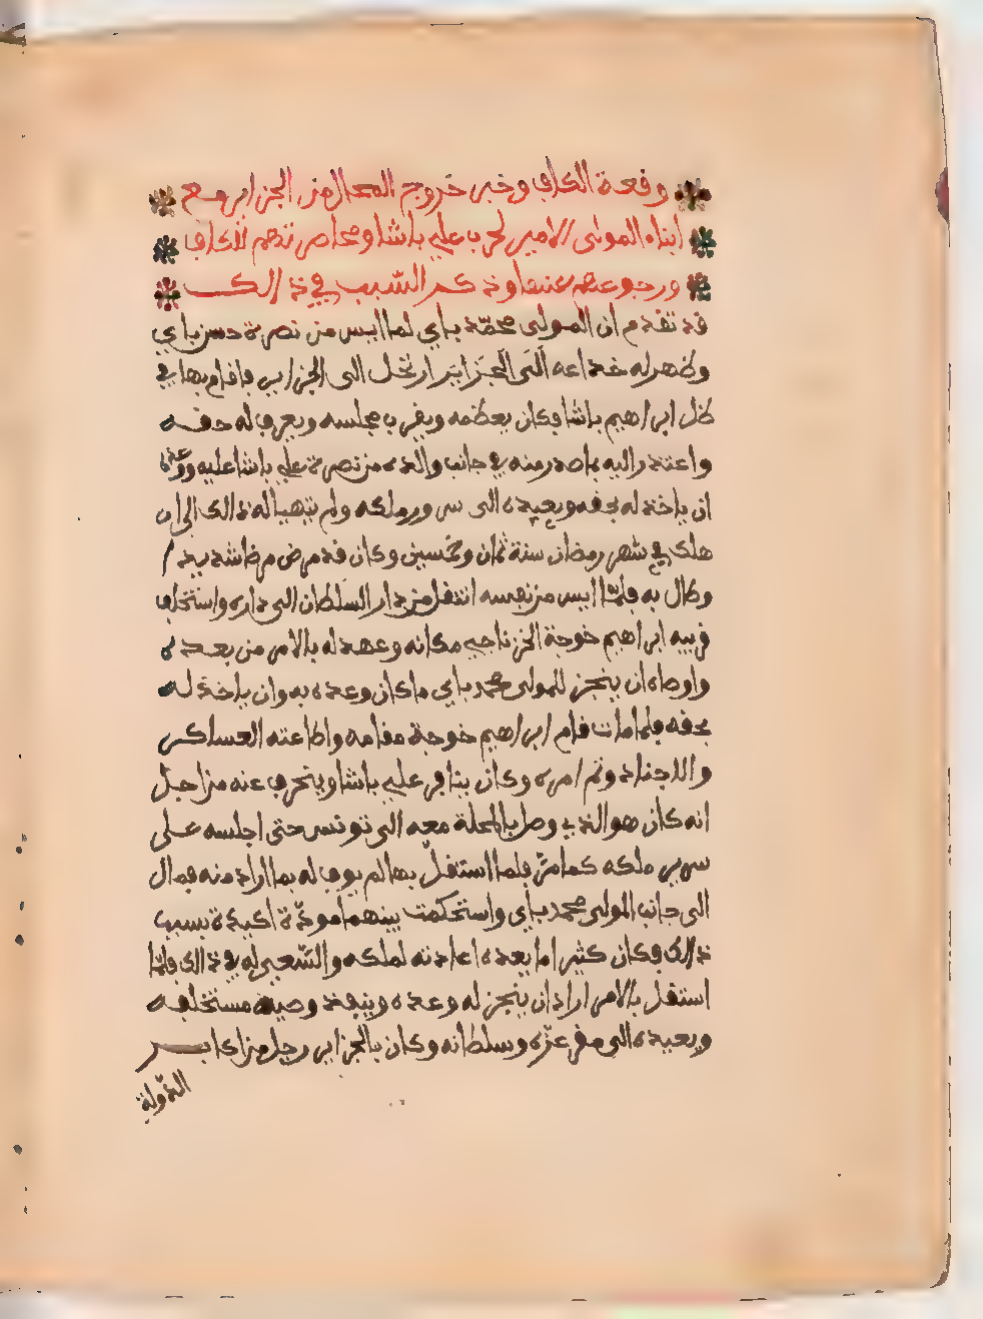 وقعة الكاف وخبر خروج المحال من الجزاير مع
ابناء المولى الامير لحرب علي باشا ومحاصرتهم للكاف
ورجوعهم عنها وذكر السّبب في ذالك
قد تقدم ان المولى محمّد باي لما ايس من نصرة حسن باي
وظهر له خداعه الى الجزاير ارتحل الى الجزاير فاقام بها في
ظل ابراهيم باشا فكان يعظمه ويقرب مجلسه ويعرف له حقه
واعتذر اليه بما صدر منه في جانب والده من نصرة علي باشا عليه ووعده
ان ياخذ له بحقه ويعيده الى سرور ملكه ولم يتهيا له ذالك الى ان
هلك في شهر رمضان سنة ثمان وخمسين وكان قد مرض مرضا شديدا
وطال به فلمّا ايس من نفسه انتقل من دار السّلطان الى داره واستخلف
قريبه ابراهيم خوجة الخزناجي مكانه وعهد له بالامر من بعده
واوصاه ان ينجز للمولى محمد باي ما كان وعده به وان ياخذ له
بحقه فلما مات قام ابراهيم خوجة مقامه واطاعته العساكر
والاجناد وتم امره وكان ينافر علي باشا وينحرف عنه من اجل
انه كان هو الذي وصل بالمحلة معه الى تونس حتى اجلسه على
سرير ملكه كما مرّ فلما استقلّ بها لم يوف له بما اراد منه فمال
الى جانب المولى محمد باي واستحكمت بينهما مودّة اكيدة بسبب
ذالك فكان كثيرا ما يعده اعادته لملكه والسّعي له في ذالك فلمّا
استقل بالامر اراد ان ينجز له وعده وينفذ وصية مستخلفه
ويعيده الى مقر عزّه وسلطانه وكان بالجزاير رجل من اكابر
الدّولة